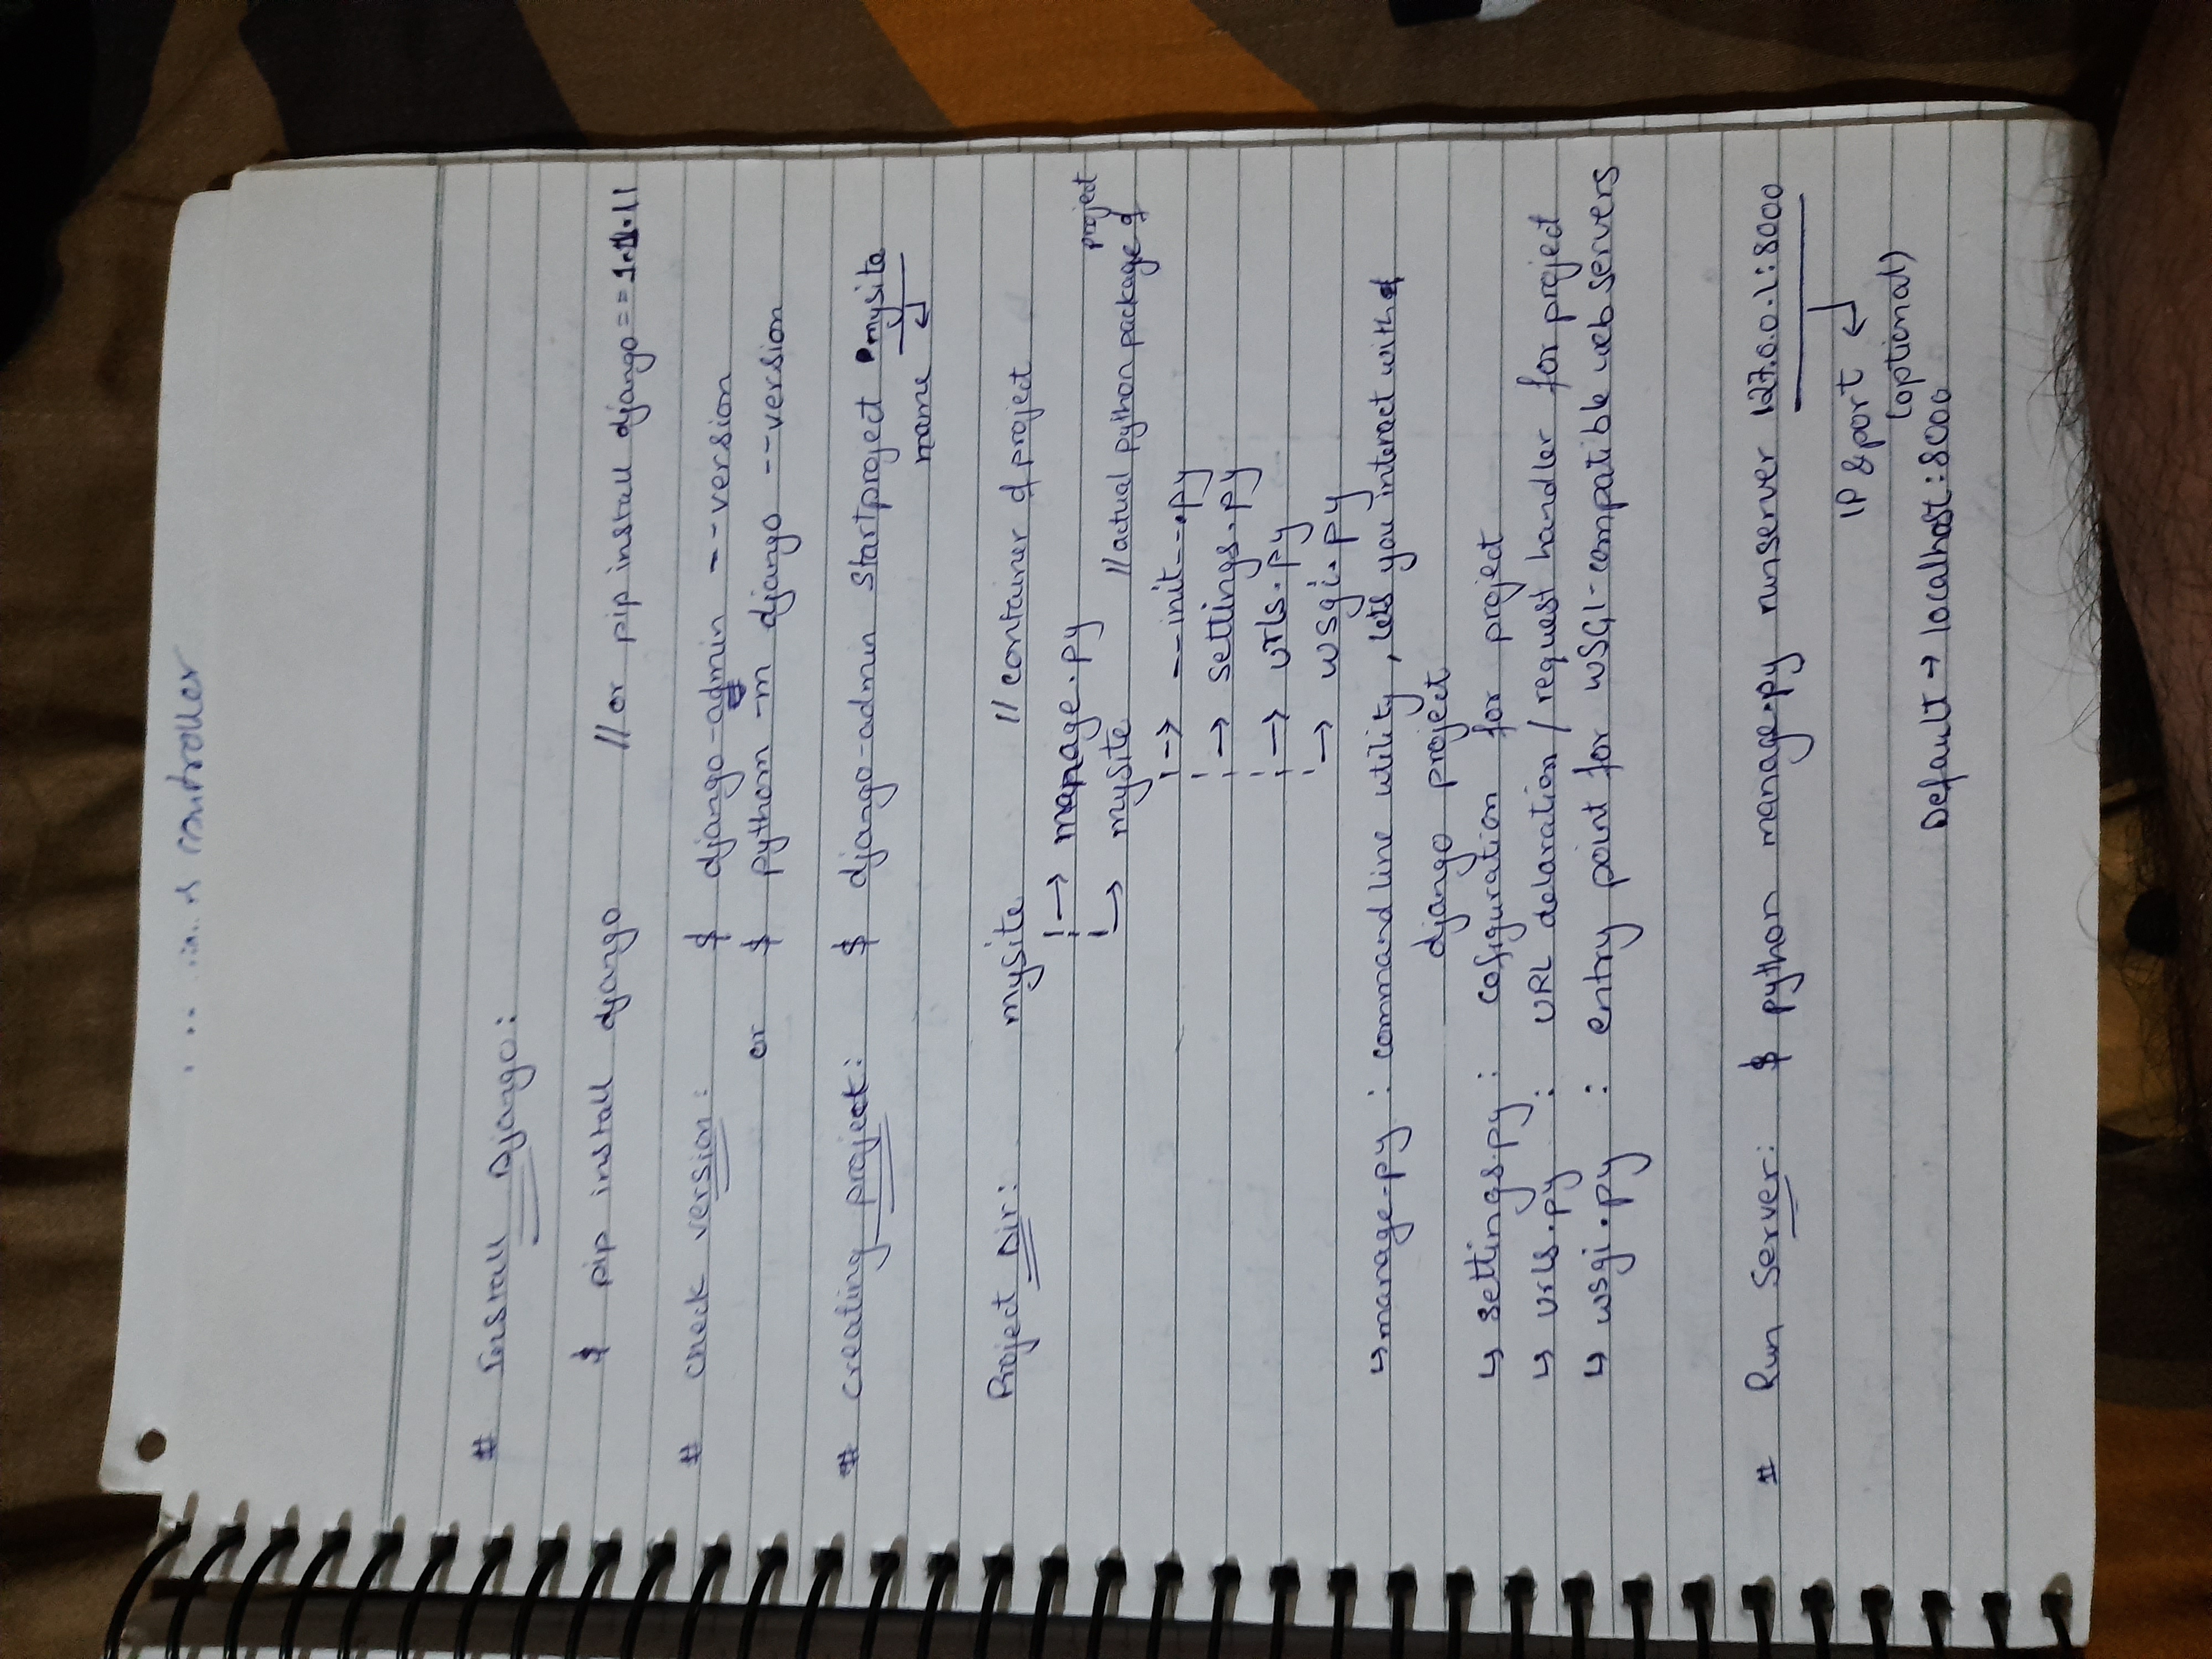 controller
# Install Django:
$ pip install django // or pip install django == 1.11.11
# check version: $ django-admin --version
or $ python -m django --version
# creating project: $ django-admin startproject mysite
name ↲
Project Dir: mysite // container of project
→ manage.py
project
→ mysite // actual python package of
→ __init__.py
→ settings.py
→ urls.py
→ wsgi.py
↳ manage.py : command line utility, lets you interact with
django project
↳ settings.py : cofiguration for project
↳ urls.py : URL delaration / request handler for project
↳ wsgi.py : entry point for WSGI-compatible web servers
# Run Server: $ python manage.py runserver 127.0.0.1:8000
IP & port ↲
(optional)
Default → localhost:8000